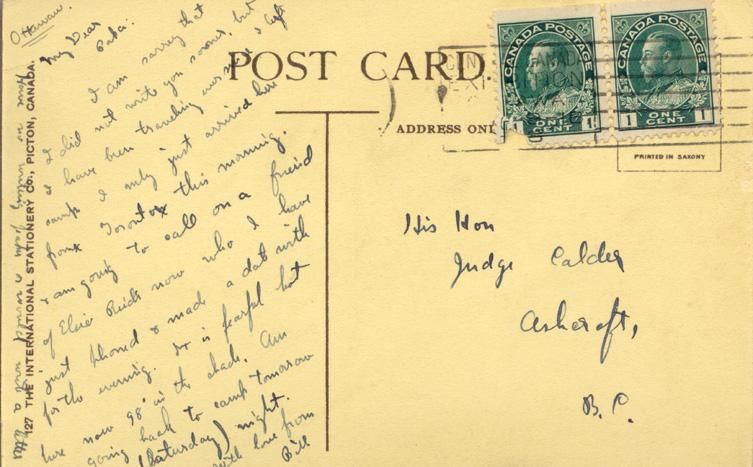 Ottawa.
My Dear
Baba:
I am sorry that
I did not write you sooner, but
I have been traveling ever since I left
camp I only just arrived here
from Toronto this morning.
I am going to call on a friend
of Elsie Reids now who I have
just phoned & made a date with
for the evening. It is fearful hot
here now 98° in the shade. Am
going back to camp tomorrow
(Saturday) night.
with love from
Bill
127 THE INTERNATIONAL STATIONERY CO., PICTON, CANADA.
POST CARD.
ADDRESS ONL
CANADA POSTAGE
1 ONE CENT 1
CANADA POSTAGE
1 ONE CENT 1
CANADA
PRINTED IN SAXONY
His Hon
Judge Calder
Ashcroft,
B.C.